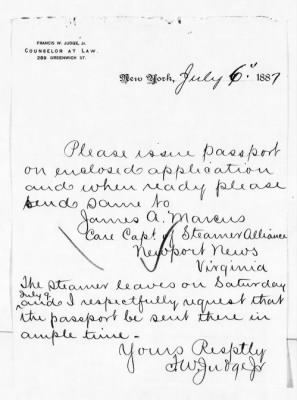 FRANCIS W. JUDGE, Jr.
COUNSELOR AT LAW.
289 GREENWICH ST.
New York, July 6" 1887
Please issue passport
on enclosed application
and when ready please
send same to
James A. Marcus
Care Capt of Steamer Alliance
Newport News
Virginia
The steamer leaves on Saturday
July 9
and I respectfully request that
the passport be sent there in
ample time -
Yours Resptly
F.W. Judge Jr